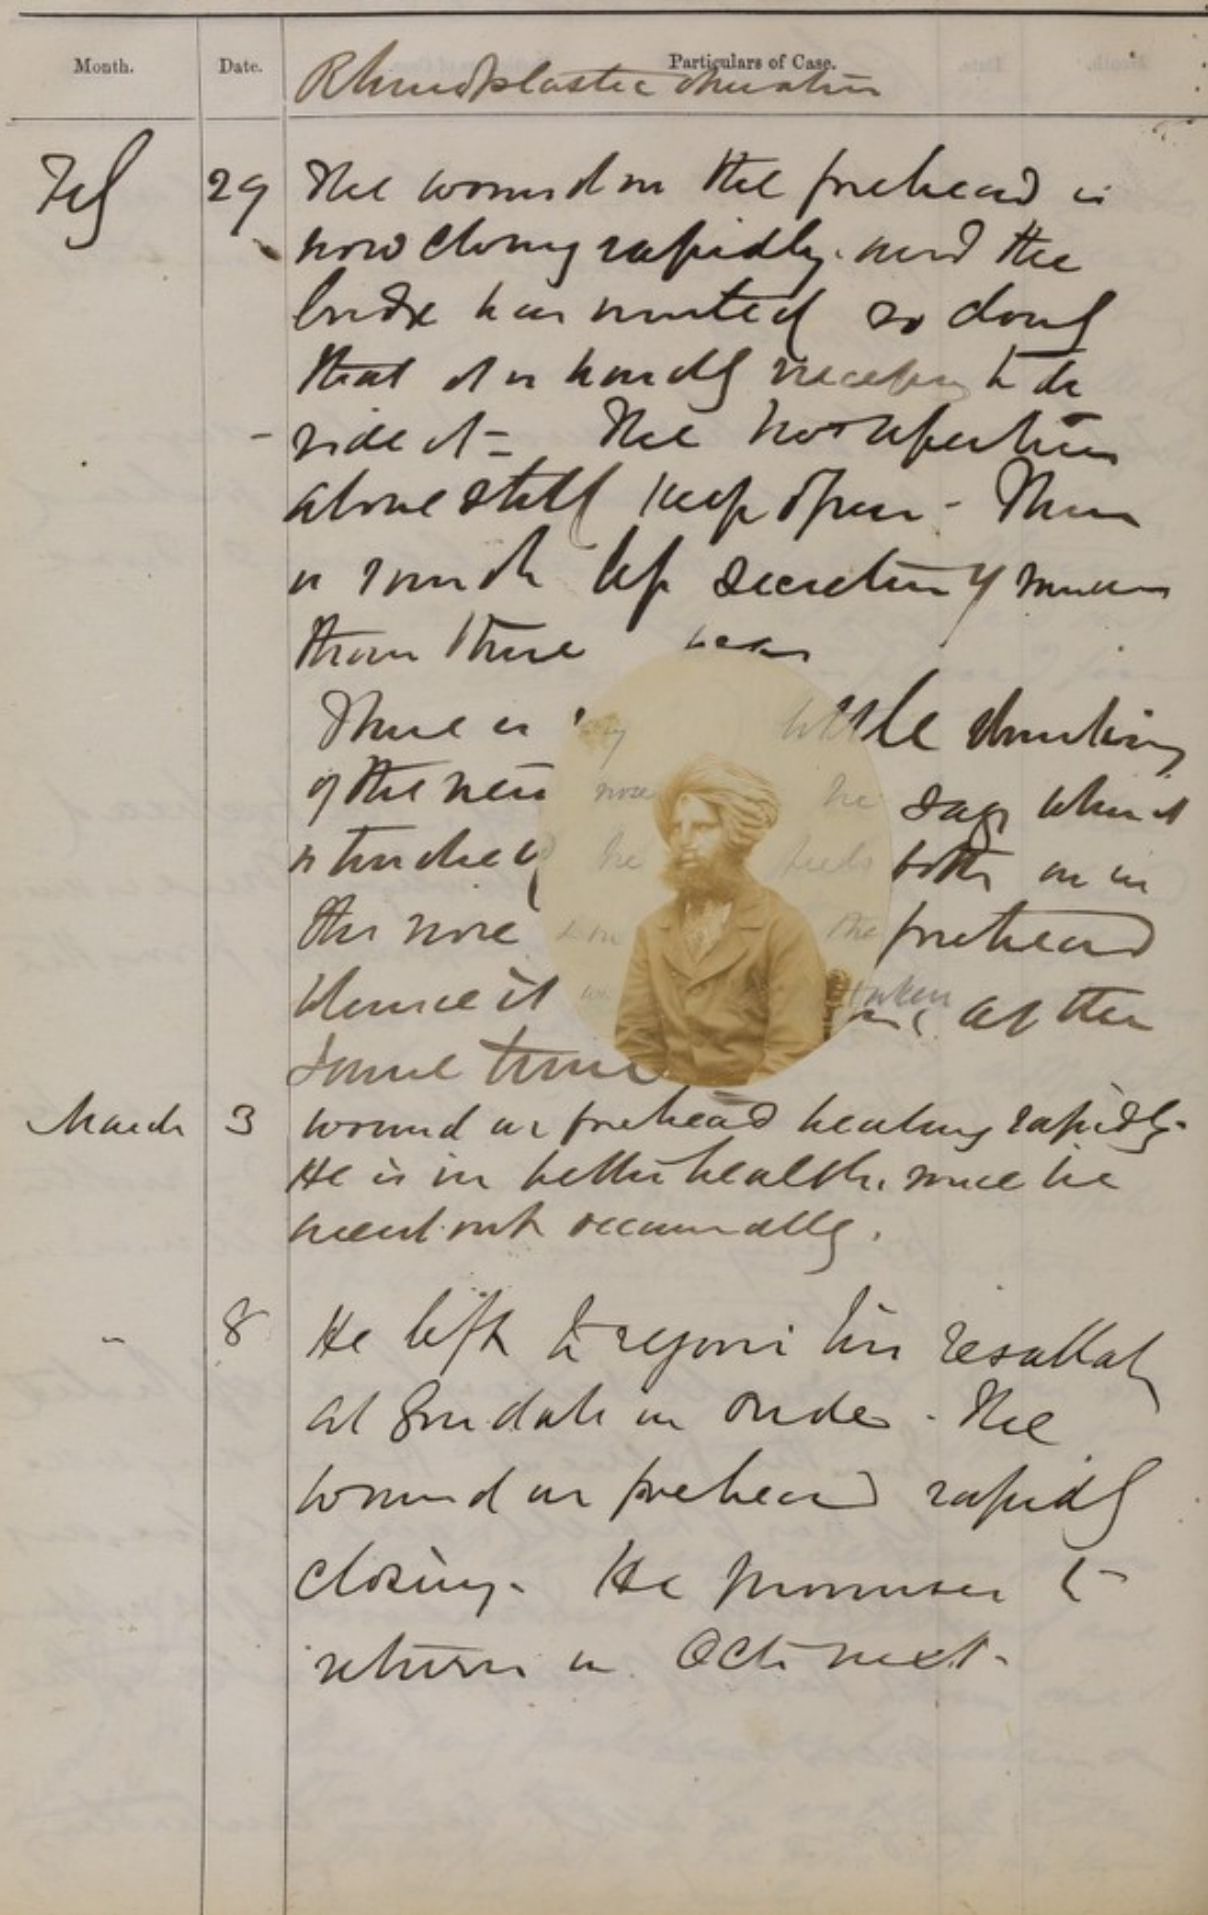 Month. Date. Particulars of Case.
Rhinoplastic operation
Feb 29 The wound on the forehead is
now closing rapidly. and the
bridge has united so
that it is hardly necessary to
side it - The two apertures
alone still keep open - There
is much less secretion of mucus
than there was
There is very little shrinking
of the new nose he says when it
is touched he feels both in
the nose and the forehead
whence it was taken at the
same time
March 3 wound on forehead healing rapidly.
He is in better health, since he
went out occasionally.
" 8 He left to rejoin his
at in Oude. The
wound on forehead rapidly
closing. He promises to
return in Oct. next.